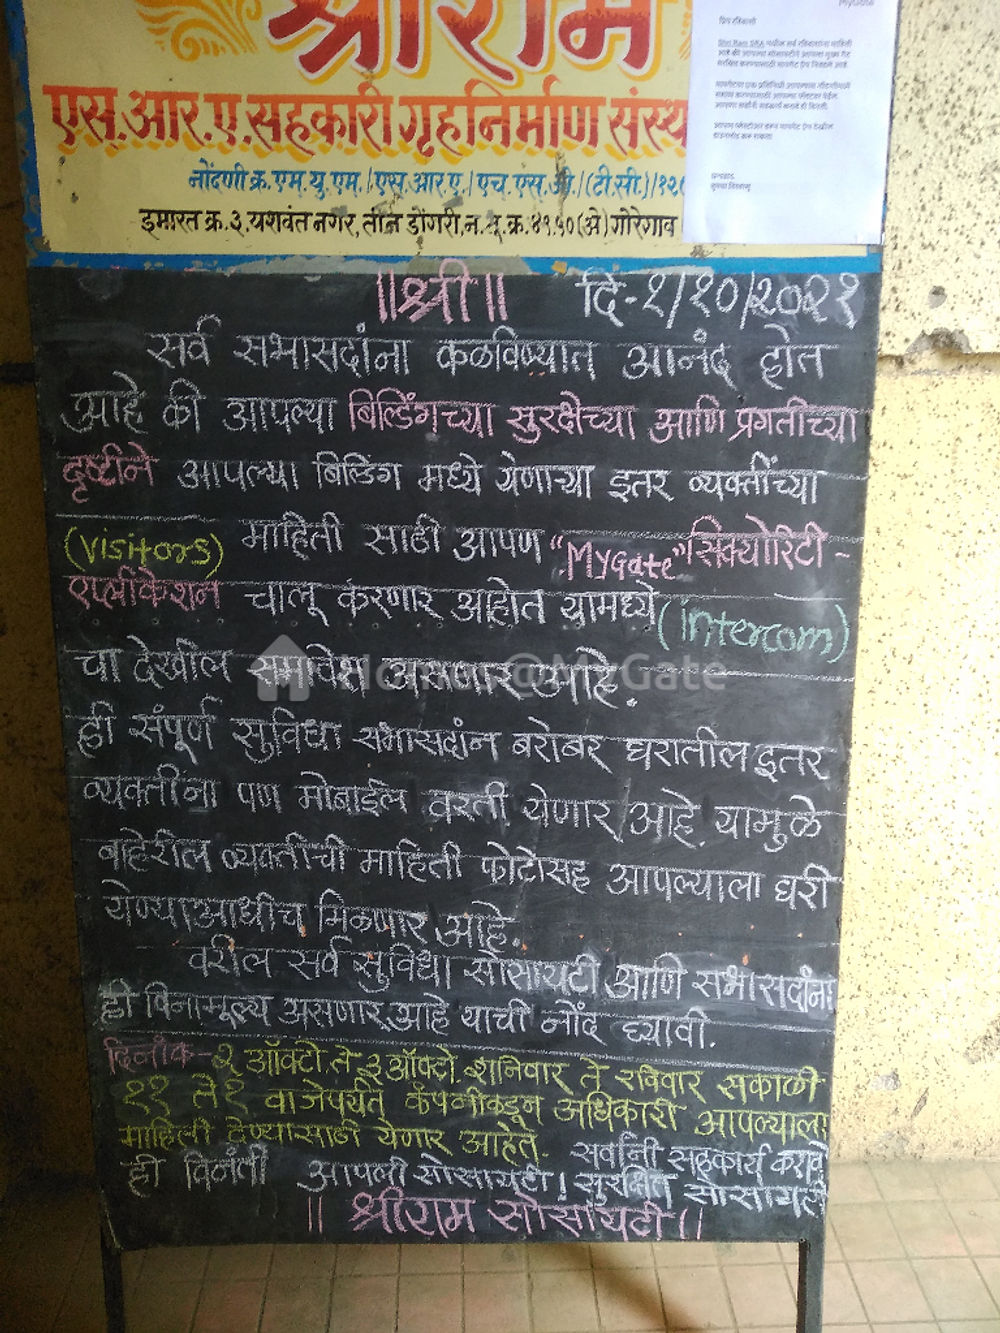 श्रीराम
एस.आर.ए.सहकारी गृहनिर्माण संस्थ
नोंदणी क्र.एम.यु.एम./एस.आर.ए./एच.एस.जी./(टी.सी.)/१२
इमारत क्र.३,यशवंत नगर,तीन डोंगरी,न.भू.क्र.४९५०(अे) गोरेगाव
MyGate
प्रिय रहिवासी
धन्यवाद,
॥श्री॥ दि-१/१०/२०२१
सर्व सभासदांना कळविण्यात आनंद होत
आहे की आपल्या बिल्डिंगच्या सुरक्षेच्या आणि प्रगतीच्या
दृष्टीने आपल्या बिल्डिंग मध्ये येणाऱ्या इतर व्यक्तींच्या
(visitors) माहिती साठी आपण "MyGate" सिक्योरिटी-
एप्लीकेशन चालू करणार आहोत यामध्ये (intercom)
चा देखील समावेश असणार आहे.
ही संपूर्ण सुविधा सभासदांन बरोबर घरातील इतर
व्यक्तींना पण मोबाईल वरती येणार आहे. यामुळे
बाहेरील व्यक्तीची माहिती फोटोसह आपल्याला घरी
येण्याआधीच मिळणार आहे.
वरील सर्व सुविधा सोसायटी आणि सभासदांना
ही विनामूल्य असणार आहे याची नोंद घ्यावी.
दिनांक-२ ऑक्टो. ते ३ ऑक्टो. शनिवार ते रविवार सकाळी
११ ते १ वाजेपर्यंत कंपनीकडून अधिकारी आपल्याला
माहिती देण्यासाठी येणार आहेत. सर्वांनी सहकार्य करावे
ही विनंती आपली सोसायटी । सुरक्षित सोसायटी
॥ श्रीराम सोसायटी ॥
@MyGate